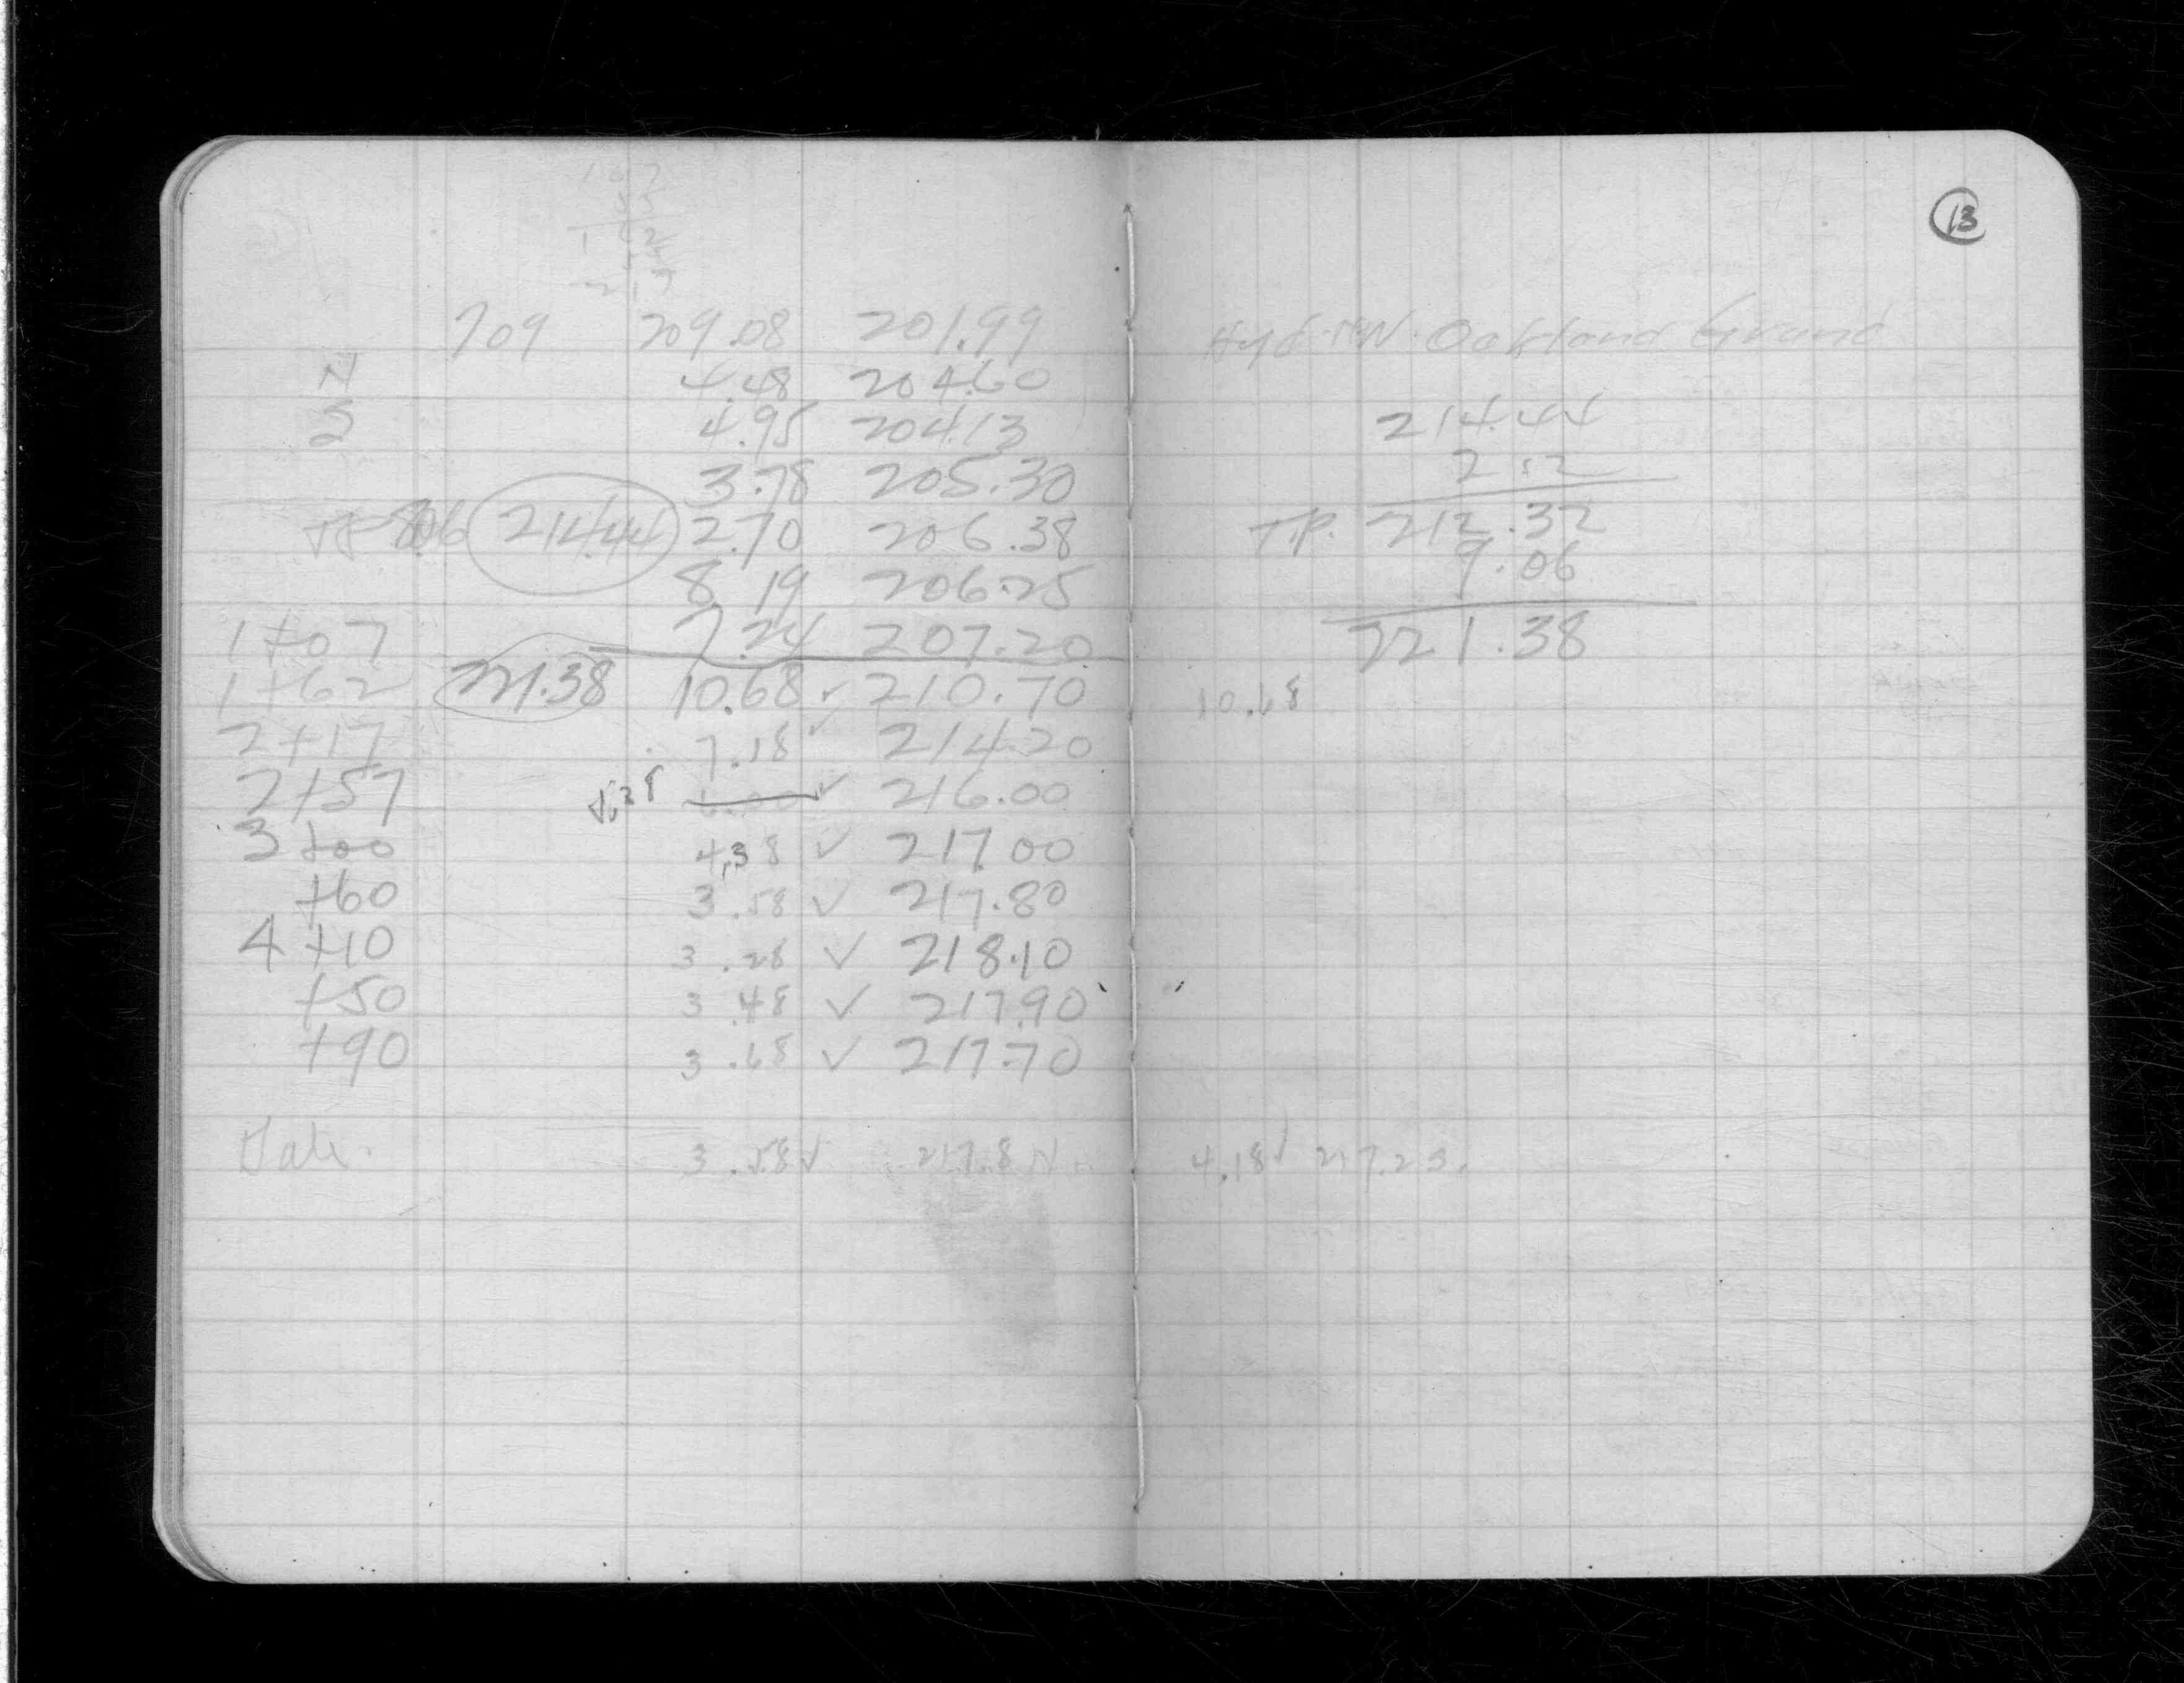 13
709 209.08 201.99 Hyd. Oakland Grand
N 4.48 204.60
S 4.95 204.13 214.44
3.78 205.30 2.12
806 214.44 2.70 206.38 T.P. 212.32
8 19 206.25 9.06
1+07 7.24 207.20 221.38
1+62 221.38 10.68 ✓ 210.70 10.68
2+17 7.18 ✓ 214.20
2+57 5.38 ✓ 216.00
3+00 4.38 ✓ 217.00
+60 3.58 ✓ 217.80
4+10 3.28 ✓ 218.10
+50 3.48 ✓ 217.90
+90 3.68 ✓ 217.70
3.58 ✓ 217.8 N 4.18 ✓ 217.2 S.